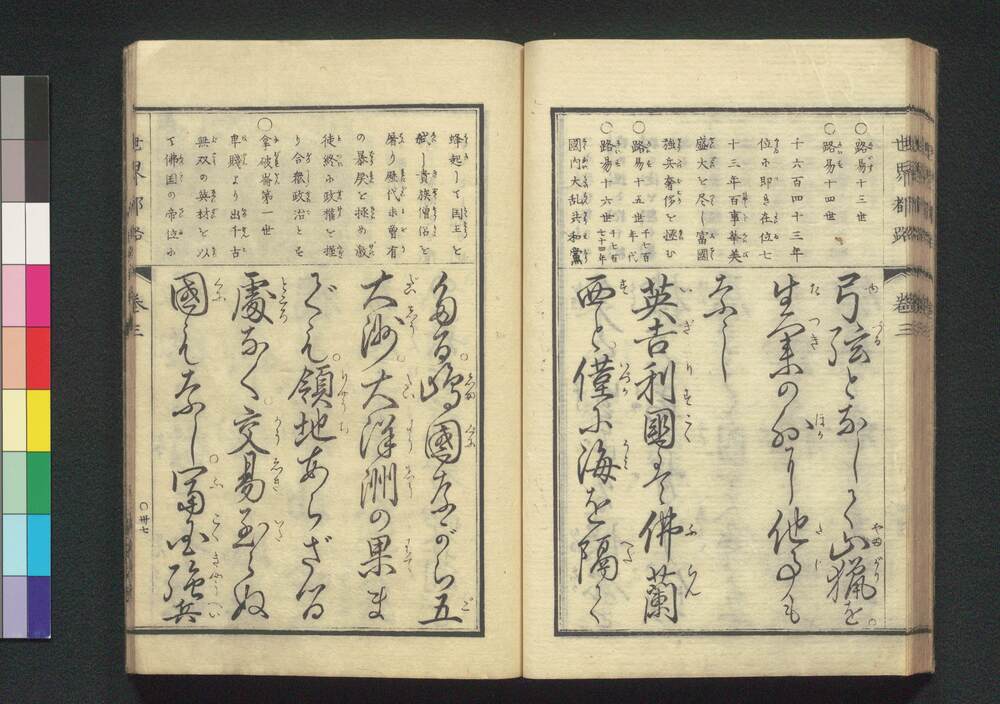 世界都路
巻三
○路易十三世
○路易十四世
千六百四十三年
位に即き在位七
十三年百事華美
盛大を尽し富國
強兵奢侈を極む
○路易十五世
○路易十六世
國内大乱共和黨
弓弦となしてや山猟を。
生業の外に他事も
なし
英吉利國は佛蘭
西と僅に海を隔て
蜂起して国王を
弑し貴族僧侶を
屠り歴代未曽有
の暴戻を極め激
徒終に政権を握
り合衆政治とそ
○拿破崙第一世
卑賤より出千古
無双の英材を以
て佛国の帝位に
たる。嶋國ながら五
大洲。大洋洲の果ま
でも。領地あらざる
處なく。交易至らぬ
國もなし。冨国強兵
世界都路
巻三
○卅七